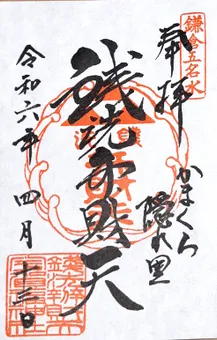 鎌倉五名水
奉拝
かまくら
隠れ里
銭洗弁財天
令和六年
四月
十三日